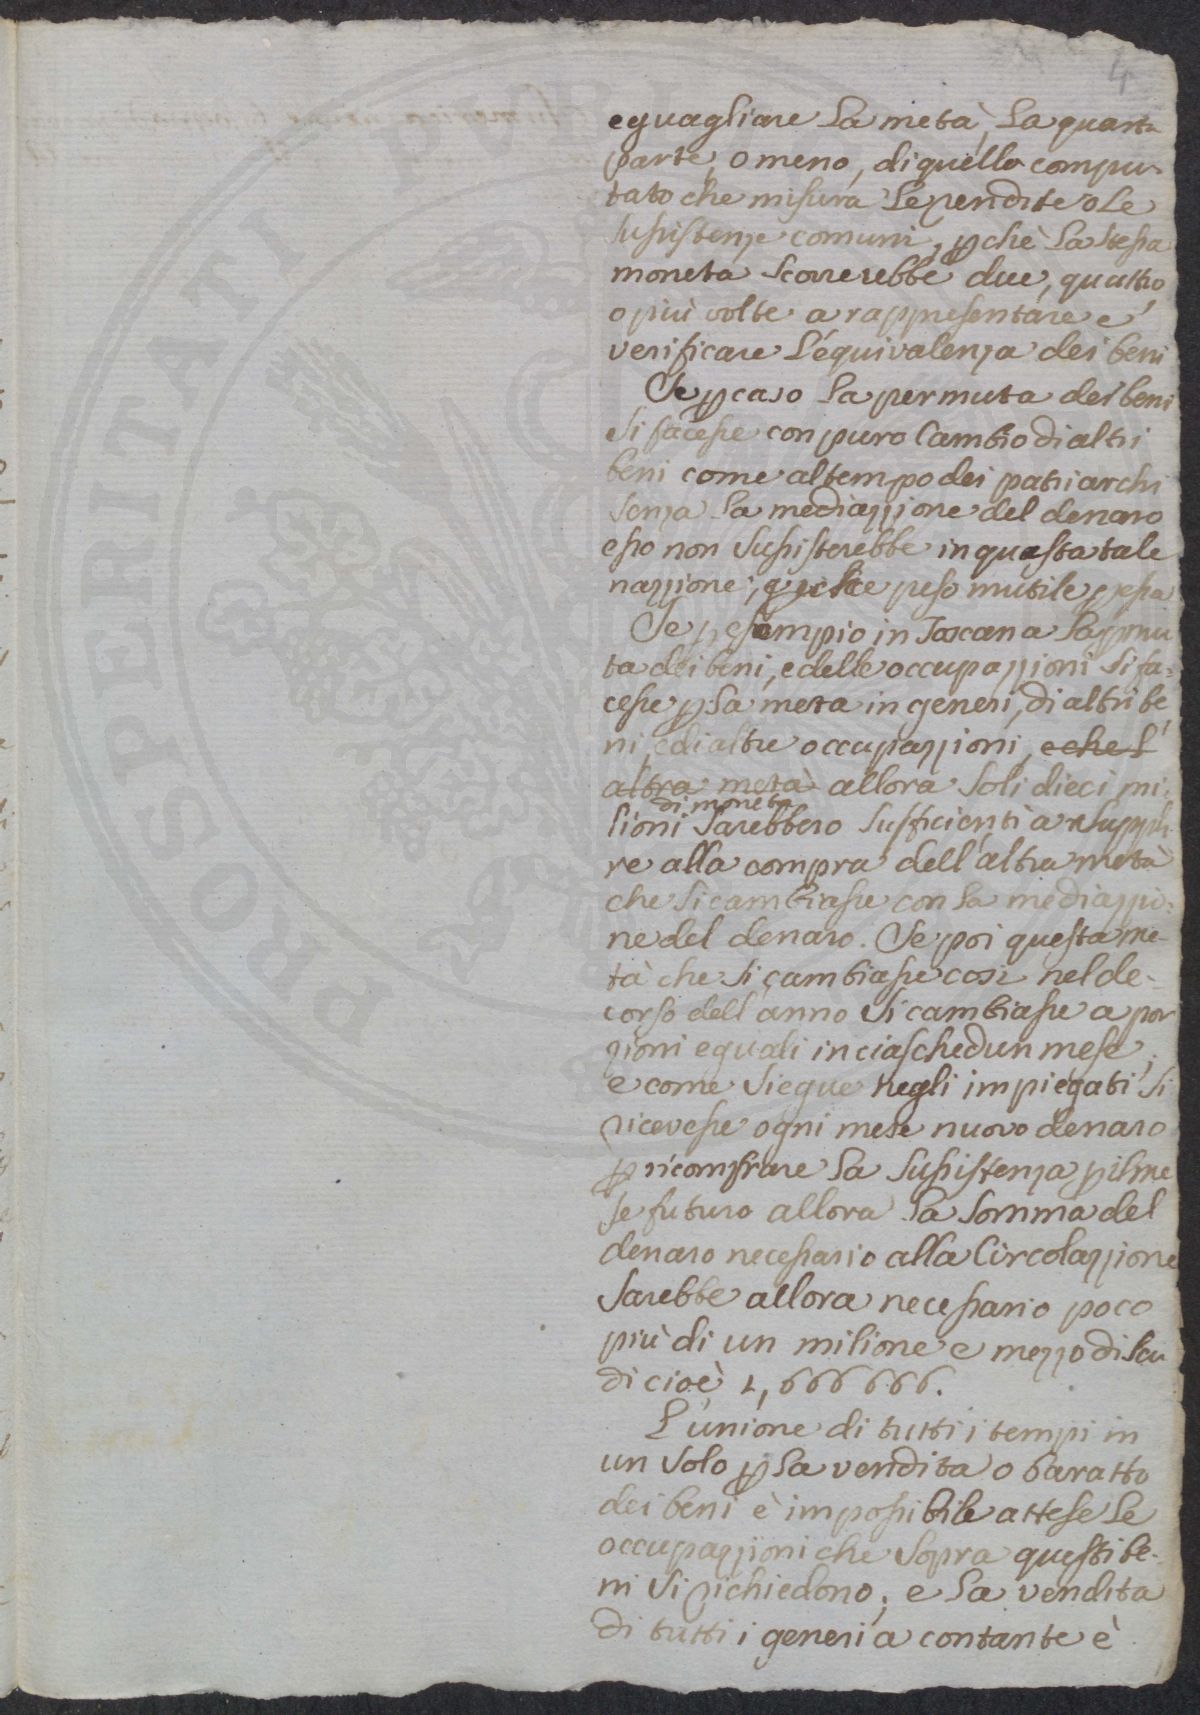 4
eguagliare la metà, la quarta
parte, o meno, di quello compu-
tato che misura le vendite o le
sussistenze comuni, p chè la stessa
moneta scorrerebbe due, quattro
o più volte a rappresentare e
verificare l'equivalenza dei beni
Se p caso la permuta dei beni
si facesse con puro cambio di altri
beni come al tempo dei patriarchi
senza la mediazzione del denaro
esso non sussisterebbe in questa tale
nazzione, peso inutile p essa
Se p esempio in Toscana la pmu
ta dei beni, e delle occupazzioni si fa-
cesse p la metà in generi, di altri be
ni, e di altre occupazzioni, e che l'
altra metà allora soli dieci mi-
di moneta
lioni sarebbero sufficienti a suppli-
re alla compra dell'altra metà
che si cambiasse con la mediazzio-
ne del denaro. Se poi questa me-
tà che si cambiasse così nel de-
corso dell'anno si cambiasse a por
zioni eguali in ciaschedun mese,
e come siegue negli impiegati si
ricevesse ogni mese nuovo denaro
p ricomprare la sussistenza p il me
se futuro allora la somma del
denaro necessario alla Circolazzione
sarebbe allora necessario poco
più di un milione e mezzo di scu
di cioè 1,666666.
L'unione di tutti i tempi in
un solo p la vendita o baratto
dei beni è impossibile attese le
occupazzioni che sopra questi be-
ni si richiedono, e la vendita
di tutti i generi a contante è
PROSPERITATI PUBL